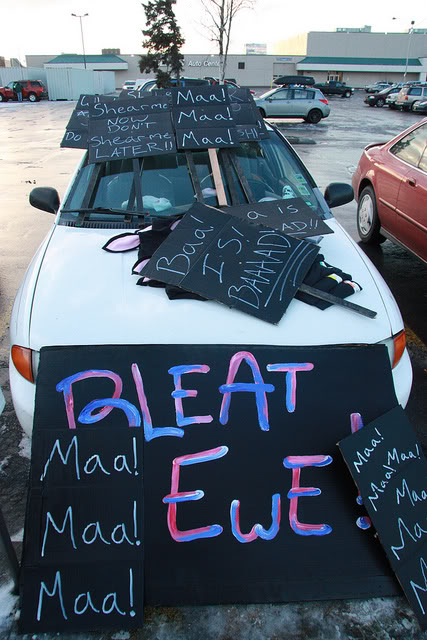 Auto Center
Shearme
NOW
DON'T
Shearme
LATER!!
Maa!
Maa!
Maa!
SH!
DO
Baa!
IS!
BAAAAD
a IS
AD!!
BLEAT
EWE!
Maa!
Maa!
Maa!
Maa!
Maa! Maa!
Maa
Ma
M